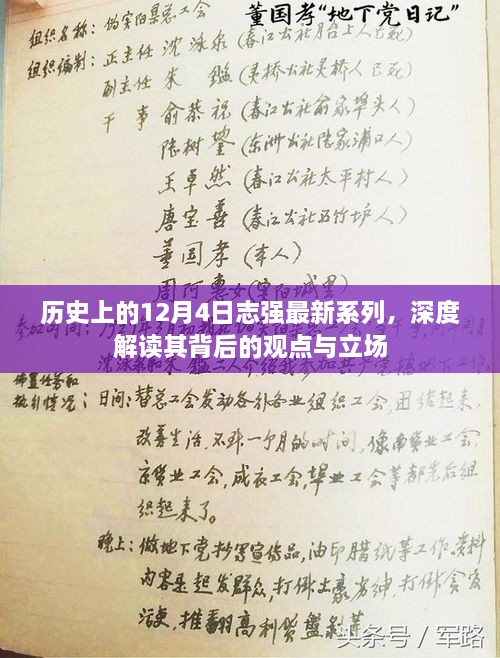 董国孝“地下党日记”
组织名称：伪富阳县总工会
组织编制：正主任 沈泳泉（春江公社月台上人已死）
副主任 朱 鑑（灵桥公社灵桥人已死）
干 事 俞恭祝（春江公社俞家埠头人）
陆树鋆（东洲公社陆家浦口人）
王卓然（春江公社太平村人）
唐宝善（春江公社筠竹垆人）
董国孝（本人）
周阿惠女（富阳城里）
历史上的12月4日志强最新系列，深度
解读其背后的观点与立场
布置任务和
执行情况：日间：替总工会发动各行各业组织工会，团结起来，
改善生活，不非一个月的时间，像南货业工会，
京货业工会，成衣工会，竿业工会等都先后组
织起来了。
晚上：做地下党抄写宣传品，油印腊纸等工作，资料
内容是起发群众，打倒土豪劣绅，打倒贪官
污吏，推翻高利贷盘剥等
头条号 / 军路